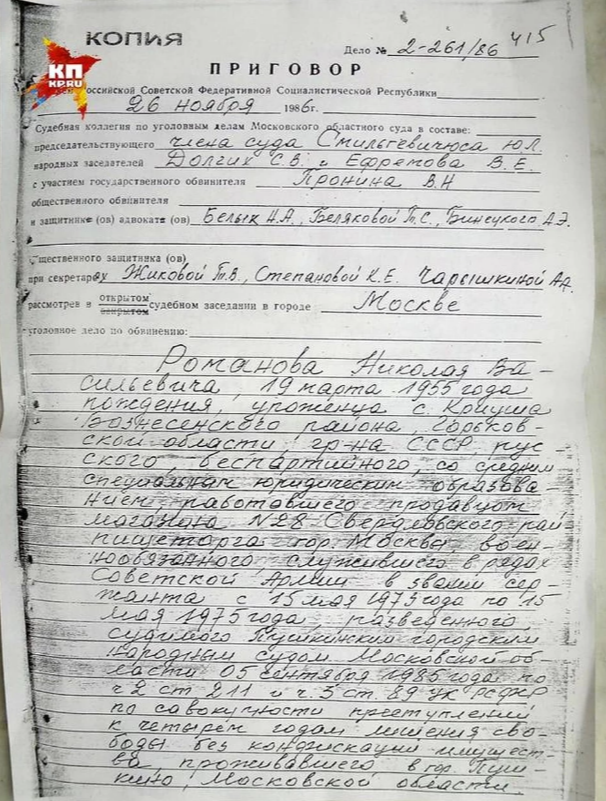 КОПИЯ
КП
KP.RU
415
Дело № 2-261/86
ПРИГОВОР
Российской Советской Федеративной Социалистической Республики
26 ноября 1986г.
Судебная коллегия по уголовным делам Московского областного суда в составе:
председательствующего члена суда Смильгевичюса Ю.Л.
народных заседателей Долгих С.В. и Ефремова В.Е.
с участием государственного обвинителя Пронина В.Н
общественного обвинителя
и защитнике (ов) адвокате (ов) Белых Н.А., Беляковой Т.С., Бинецкого А.Э.
общественного защитника (ов)
при секретарях Жиковой Т.В., Степановой К.Е. Чарышкиной А.А.
рассмотрев в открытом судебном заседании в городе Москве
закрытом
уголовное дело по обвинению:
Романова Николая Ва-
сильевича, 19 марта 1955 года
рождения, уроженца с. Криуша
Вознесенского района, Горьков-
ской области, гр-на СССР, рус-
ского, беспартийного, со средним
специальным юридическим образова
нием, работавшего продавцом
магазина №28 Свердловского рай
пищеторга гор. Москвы, воен-
нообязанного, служившего в рядах
Советской Армии в звании сер-
жанта с 15 мая 1973 года по 15
мая 1975 года, разведенного,
судимого Пушкинским городским
народным судом Московской об-
ласти 05 сентября 1985 года по
ч2 ст 211 и ч.3 ст. 89 УК РСФСР
по савокупности преступлений
к четырем годам лишения сво-
боды без конфискации имущест-
ва проживавшего в гор. Пуш-
кино, Московской области.